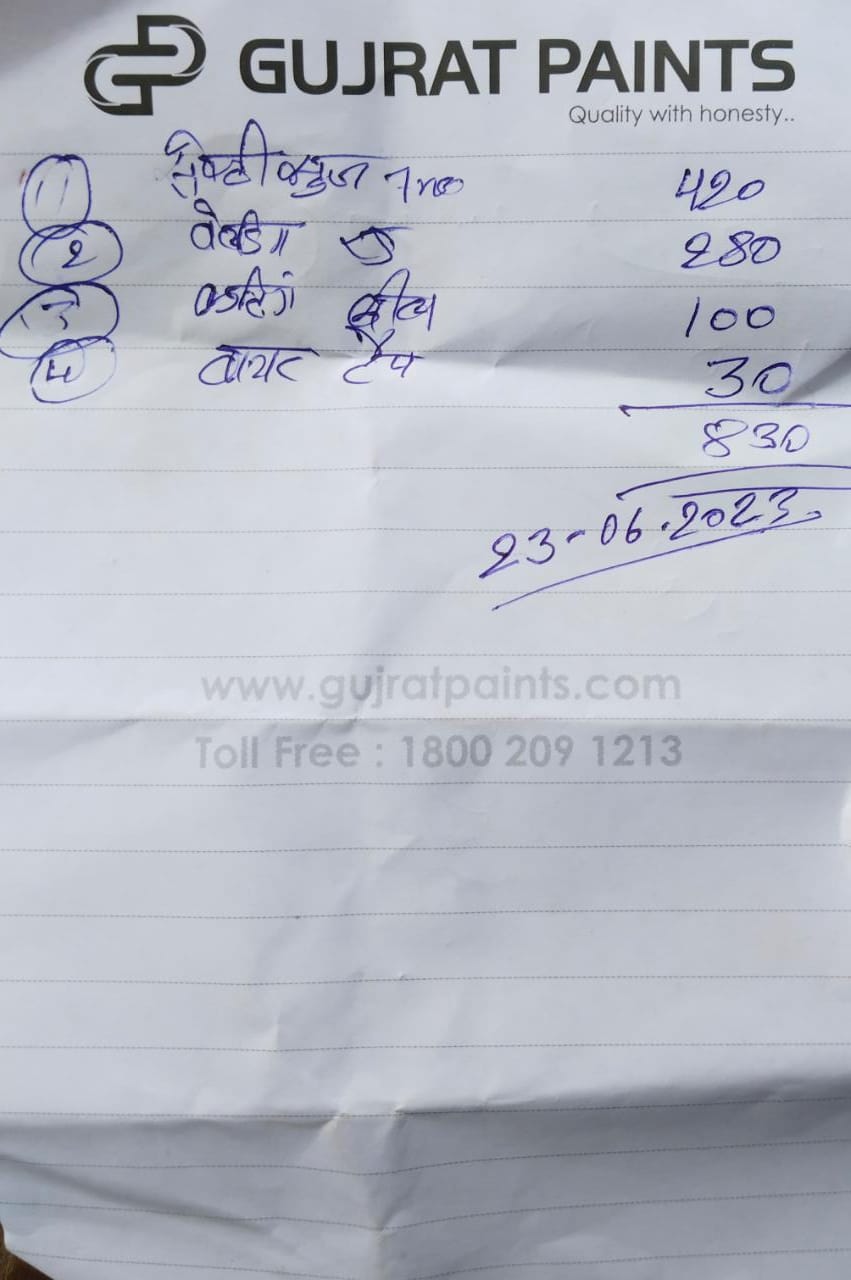 GUJRAT PAINTS
Quality with honesty..
1 7 no 420
2 280
3 कटिंग व्हील 100
4 वायर टेप 30
830
23-06.2023
www.gujratpaints.com
Toll Free : 1800 209 1213